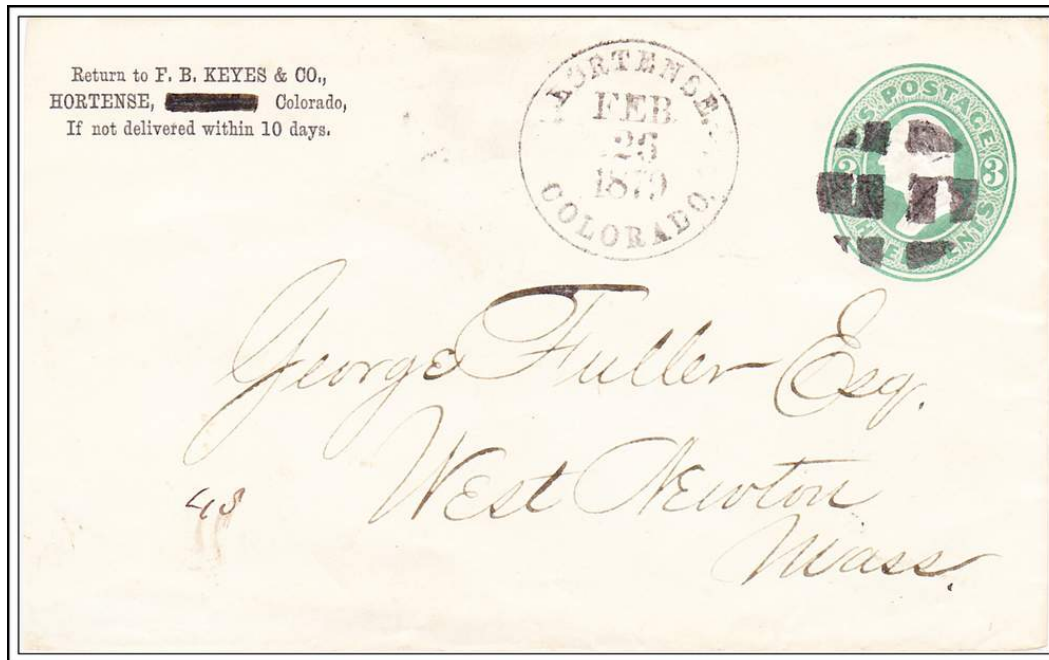 Return to F. B. KEYES & CO.,
HORTENSE, Colorado,
If not delivered within 10 days.
HORTENSE,
FEB
26
1879
COLORADO.
U.S. POSTAGE
3 3
THREE CENTS
George Fuller Esq.
West Newton
Mass.
48